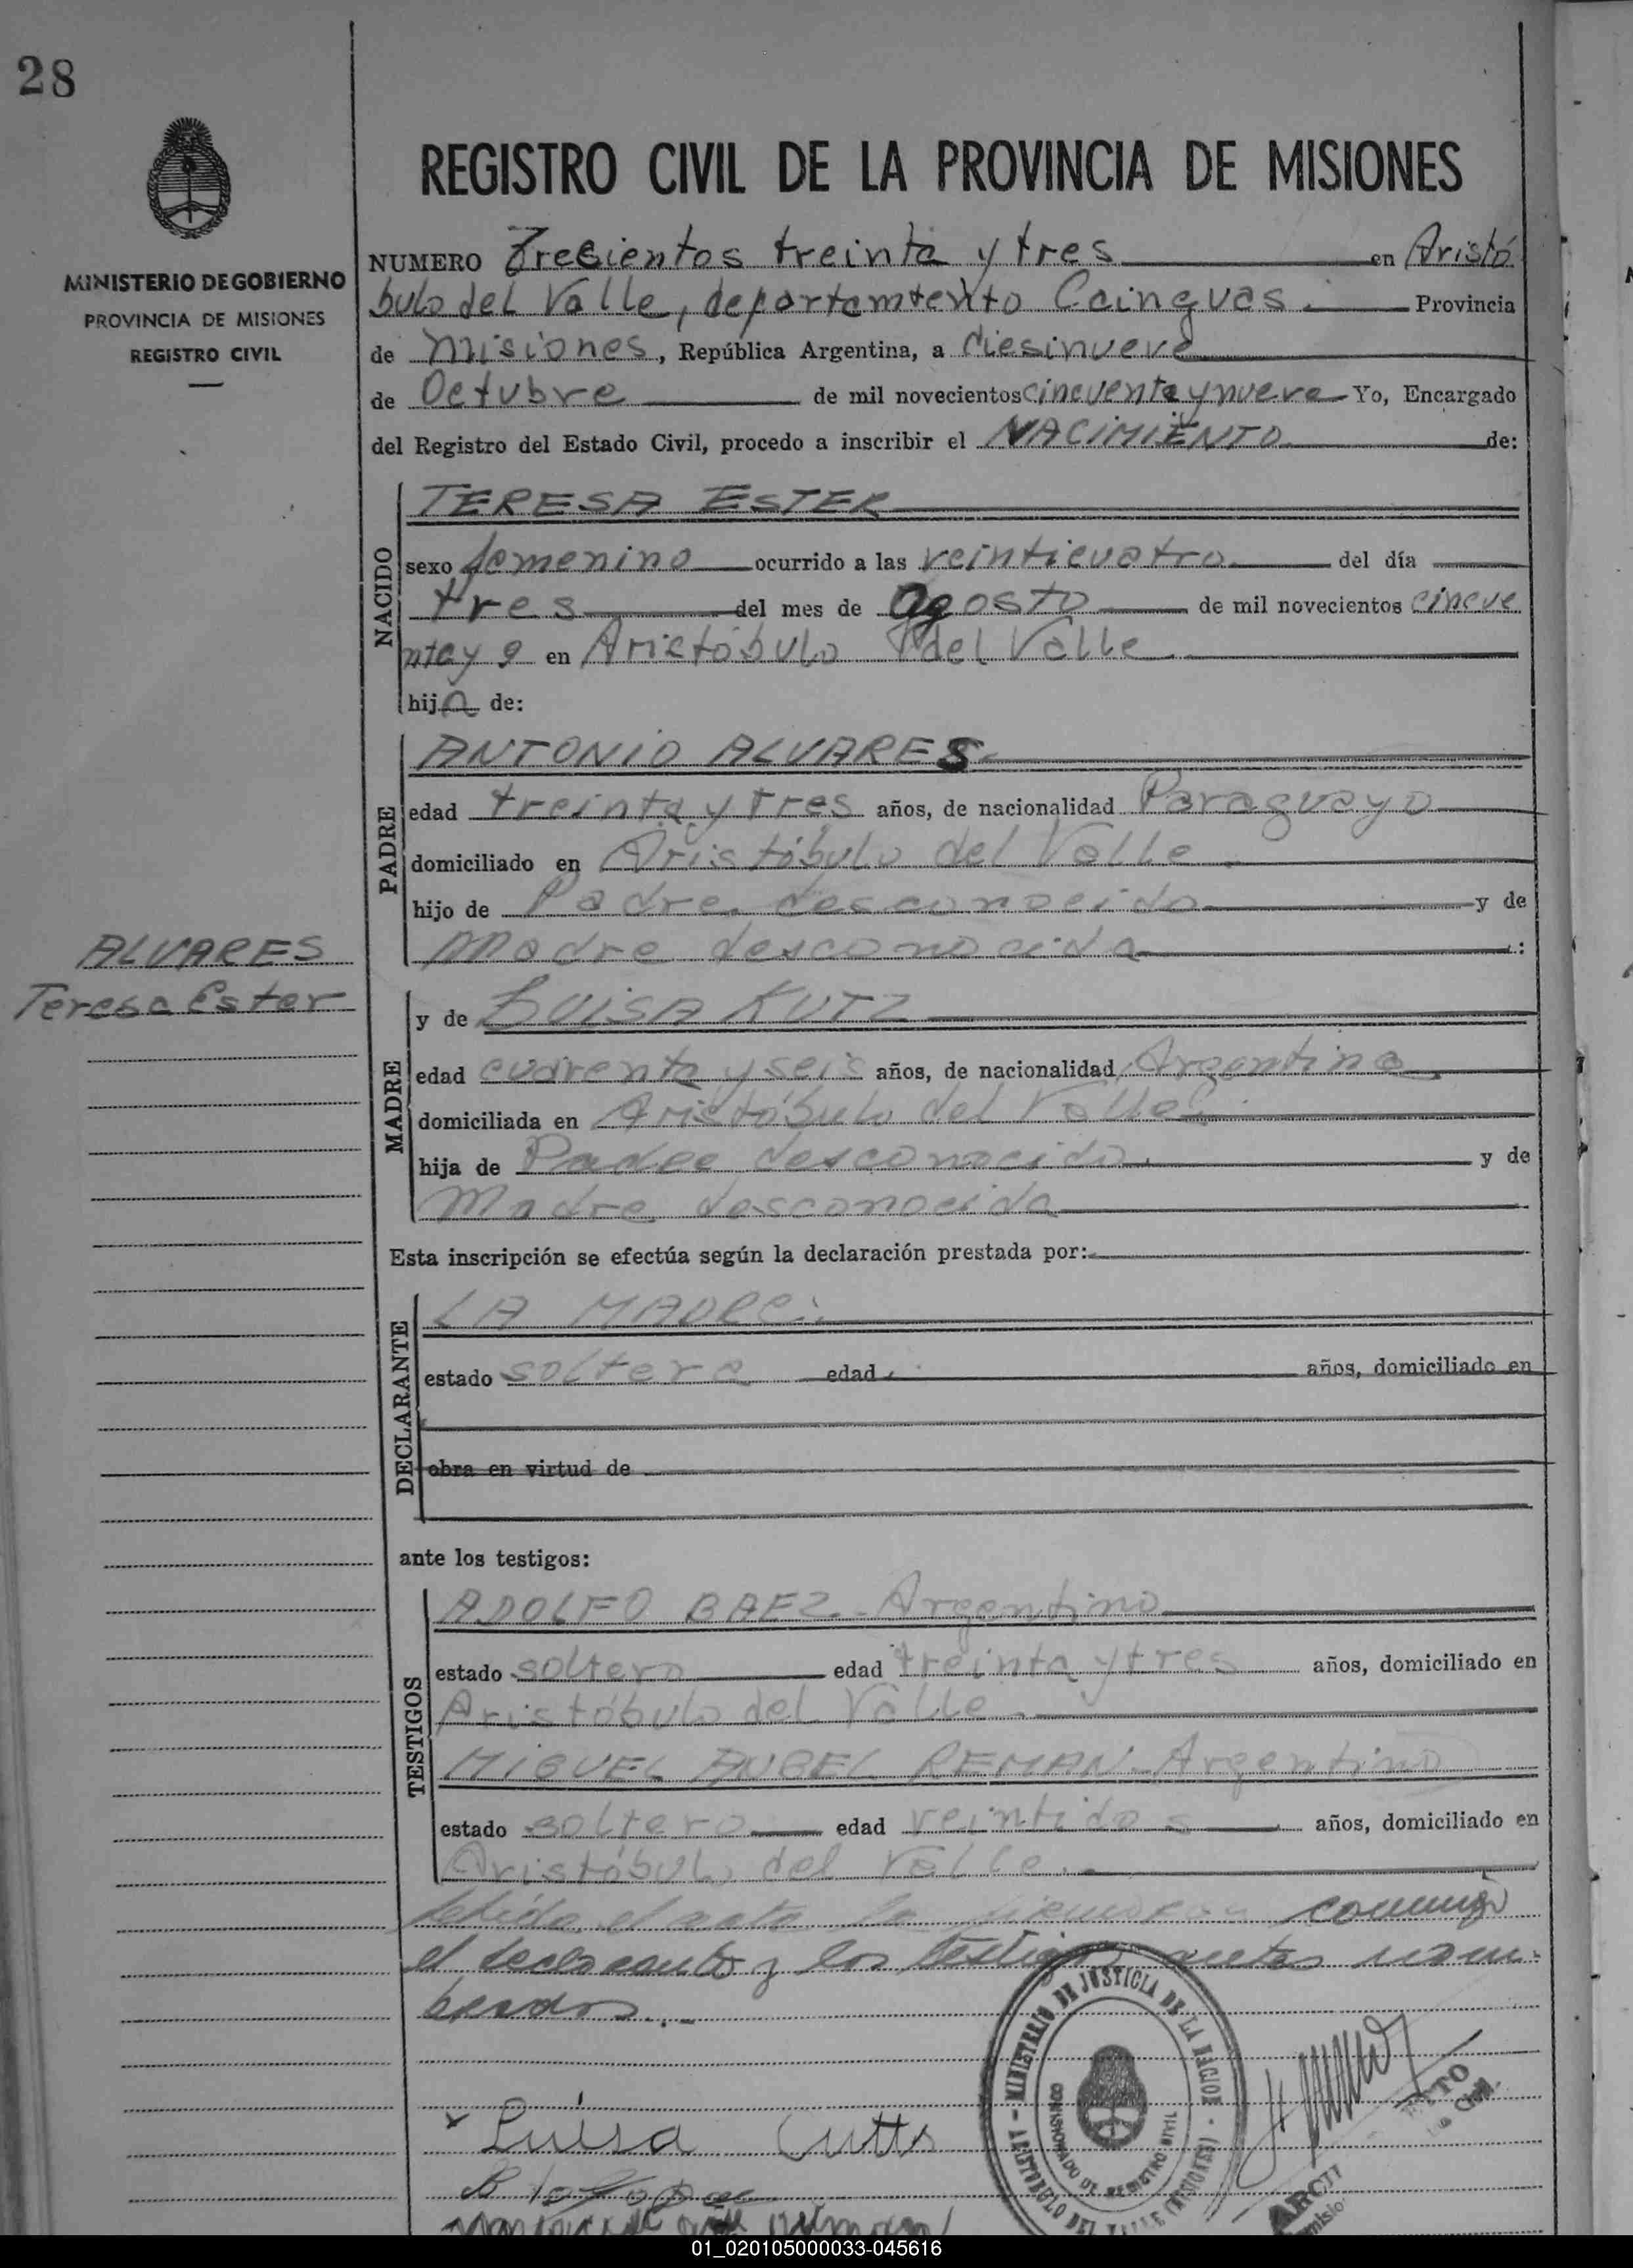 28
MINISTERIO DE GOBIERNO
PROVINCIA DE MISIONES
REGISTRO CIVIL
REGISTRO CIVIL DE LA PROVINCIA DE MISIONES
NUMERO Trecientos treinta y tres en Aristó
bulo del Valle, departamiento Cainguas. Provincia
de Misiones, República Argentina, a diesinueve
de Octubre de mil novecientos cincuenta y nueve Yo, Encargado
del Registro del Estado Civil, procedo a inscribir el NACIMIENTO de:
NACIDO
TERESA ESTER
sexo femenino ocurrido a las veinticuatro del día
tres del mes de Agosto de mil novecientos cincue
nta y 9 en Aristóbulo del Valle
hija de:
PADRE
ANTONIO ALVARES
edad treinta y tres años, de nacionalidad Paraguayo
domiciliado en Aristóbulo del Valle.
hijo de Padre desconocido y de
Madre desconocida :
ALVARES
Teresa Ester
MADRE
y de LUISA KUTZ
edad cuarenta y seis años, de nacionalidad Argentina
domiciliada en Aristóbulo del Valle
hija de Padre desconocido y de
Madre desconocida
Esta inscripción se efectúa según la declaración prestada por:
DECLARANTE
LA MADRE
estado soltera edad años, domiciliado en
obra en virtud de
ante los testigos:
TESTIGOS
ADOLFO BAEZ - Argentino
estado soltero edad treinta y tres años, domiciliado en
Aristóbulo del Valle.
MIGUEL ANGEL REMAN - Argentino
estado soltero edad veintidos años, domiciliado en
Aristóbulo del Valle.
el acta la conmigo
el declarante y los testigos nom-
brados.
MINISTERIO DE JUSTICIA DE LA NACION
ARISTOBULO DEL VALLE (MISIONES)
DE REGISTRO CIVIL
Luisa Cutts
01_020105000033-045616